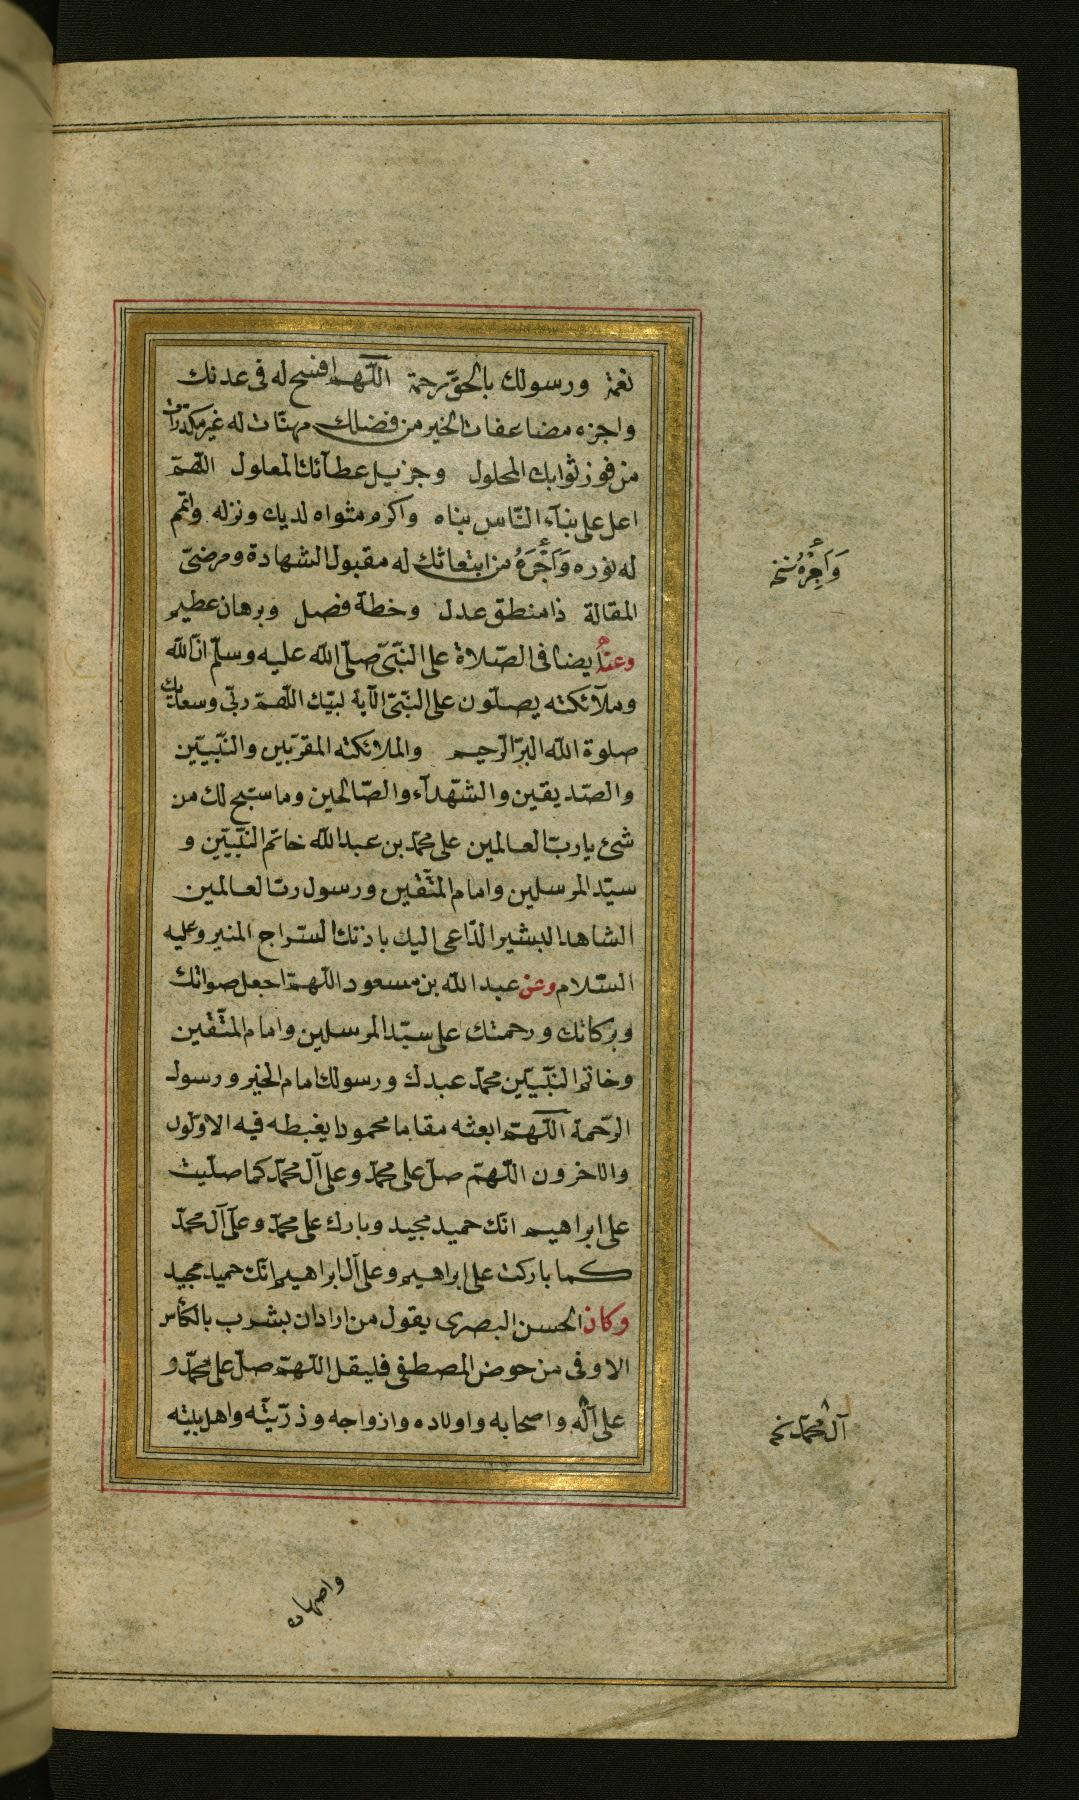 نعمة ورسولك بالحقّ رحمة اللّهمّ افسح له فى عدنك
واجزه مضاعفات الخير من فضلك مهنّات له غير مكدّرات
من فوز ثوابك المحلول وجزيل عطآئك المعلول اللّهمّ
اعل على بنآء النّاس بناه واكرم مثواه لديك ونزله واتمم
له نوره وَاَجْرَهُ من ابتعاثك له مقبول الشهادة ومرضىّ
المقالة ذا منطق عدل وخطة فصل وبرهان عظيم
وعنه ايضا فى الصّلاة على النّبىّ صلّى اللّه عليه وسلّم انّ اللّه
وملآئكته يصلّون على النّبىّ الآية لبيّك اللّهمّ ربّى وسعديك
صلوة اللّه البرّ الرّحيم والملائكته المقرّبين والنّبيّين
والصّديقين والشّهدآء والصّالحين وما سبّح لك من
شئ يا ربّ العالمين على محمّد بن عبد اللّه خاتم النّبيّين و
سيّد المرسلين وامام المتّقين ورسول ربّ العالمين
الشاهد البشير الدّاعى اليك باذنك السّراج المنير وعليه
السّلام وعن عبد اللّه بن مسعود اللّهمّ اجعل صلواتك
وبركاتك ورحمتك على سيّد المرسلين وامام المتّقين
وخاتم النّبيّين محمّد عبدك ورسولك امام الخير ورسول
الرّحمة اللّهمّ ابعثه مقاما محمودا يغبطه فيه الاوّلون
والاخرون اللّهمّ صلّ على محمّد وعلى آل محمّد كما صلّيت
على ابراهيم انّك حميد مجيد وبارك على محمّد وعلى آل محمّد
كما باركت على ابراهيم وعلى آل ابراهيم انّك حميد مجيد
وكان الحسن البصرى يقول من اراد ان يشرب بالكأس
الاوفى من حوض المصطفى فليقل اللّهمّ صلّ على محمّد و
على آله واصحابه واولاده وازواجه وذرّيّته واهل بيته
وَاَجْزِهُ نسخه
آل محمّد نخ
واصهاره